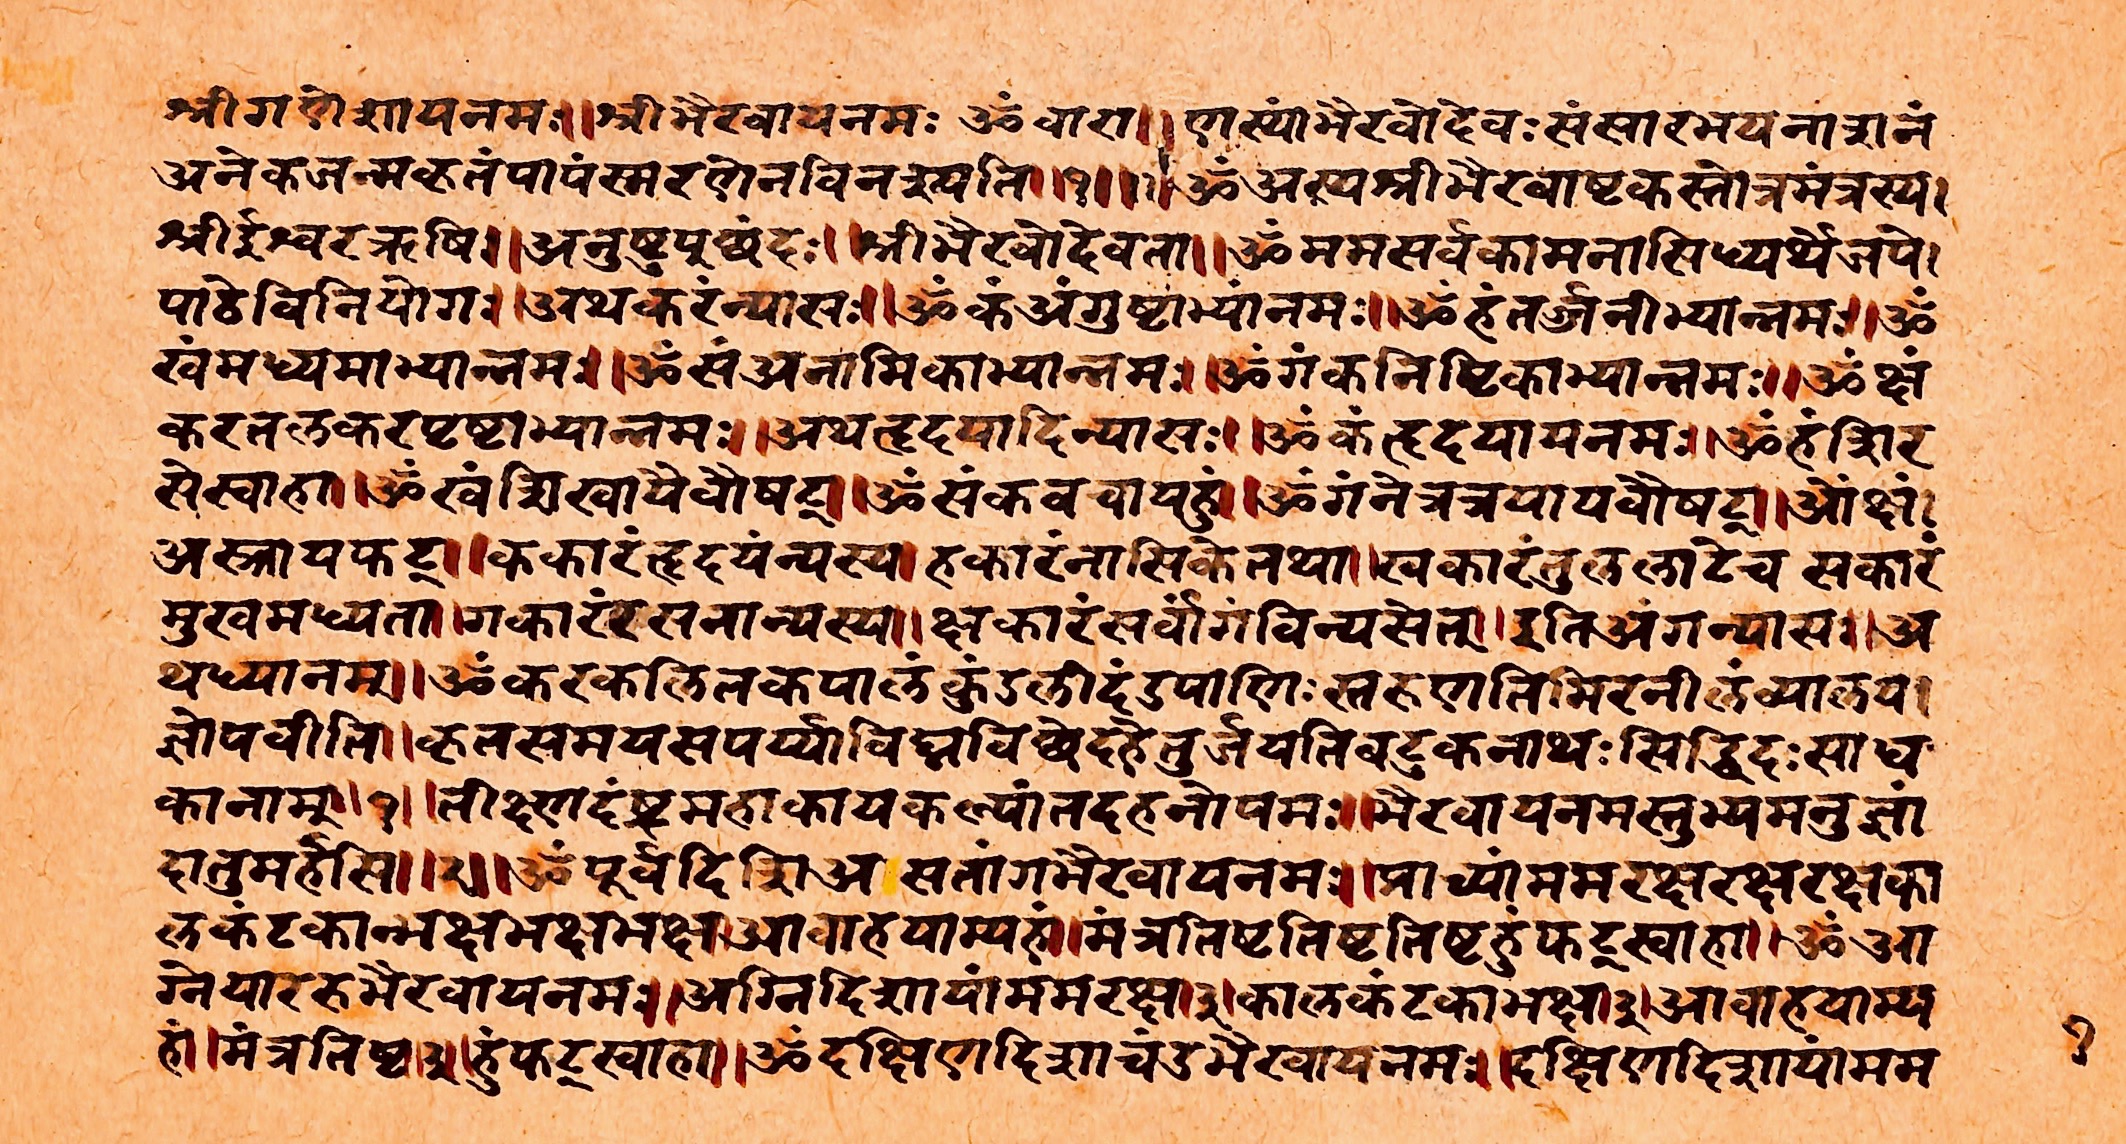 श्रीगणेशायनमः॥॥श्रीभैरवायनमः ॐ वारा॥ णस्यांभैरवोदेवः संसारभयनाशनं
अनेकजन्मकृतंपापंस्मरणेनविनश्यति॥१॥॥ॐअस्यश्रीभैरवाष्टकस्तोत्रमंत्रस्य।
श्रीईश्वरऋषिः॥अनुष्टुपुछंदः॥श्रीभैरवोदेवता॥ॐममसर्वकामनासिध्यर्थेजपे।
पाठेविनियोगः॥अथकरंन्यासः॥ॐकंअंगुष्टाभ्यांनमः॥ॐहंतर्ज्जनीभ्यान्नमः॥ॐ
खंमध्यमाभ्यान्नमः॥ॐसंअनामिकाभ्यान्नमः॥ॐगंकनिष्टिकाभ्यान्नमः॥ॐक्षं
करतलकरपृष्टाभ्यान्नमः॥अथहृदयादिन्यासः॥ॐकंहृदयायनमः॥ॐहंशिर
सेस्वाहा॥ॐखंशिखायैवौषट्॥ॐसंकवचायहुं॥ॐगंनेत्रत्रयायवौषट्॥ओंक्षं।
अस्त्रायफट्॥ककारंहृदयंन्यस्य।हकारंनासिकेतथा॥खकारंतुललाटेच सकारं
मुखमध्यता॥गकारंरसनान्यस्य॥क्षकारंसर्वांगंविन्यसेत्॥इतिअंगन्यासः॥अ
थध्यानम्॥ॐकरकलितकपालंकुंडलीदंडपाणिः स्तरुणतिमिरनीलंव्यालय।
ज्ञोपवीति॥कृतसमयसपर्य्याविघ्नविछेदहेतुर्जयतिबटुकनाथः सिद्धिदः साध
कानाम्॥१॥तीक्ष्णदंष्ट्रमहाकायकल्पांतदहनोपमः॥भैरवायनमस्तुभ्यमनुज्ञां
दातुमर्हसि॥२॥ॐपूर्वदिशिअ सतांगभैरवायनमः॥प्राच्यांममरक्षरक्षरक्षका
लकंटकान्भक्षभक्षभक्ष।आवाहयाम्यहं॥मंत्रतिष्टतिष्टतिष्टहुंफट्स्वाहा॥ॐआ
ग्नेयारुरुभैरवायनमः॥अग्निदिशायांममरक्ष।३।कालकंटकाभक्ष।३।आवाहयाम्य
हं॥मंत्रतिष्ट।३।हुंफट्स्वाहा॥ॐदक्षिणदिशाचंडभैरवायनमः॥दक्षिणदिशायांमम
१